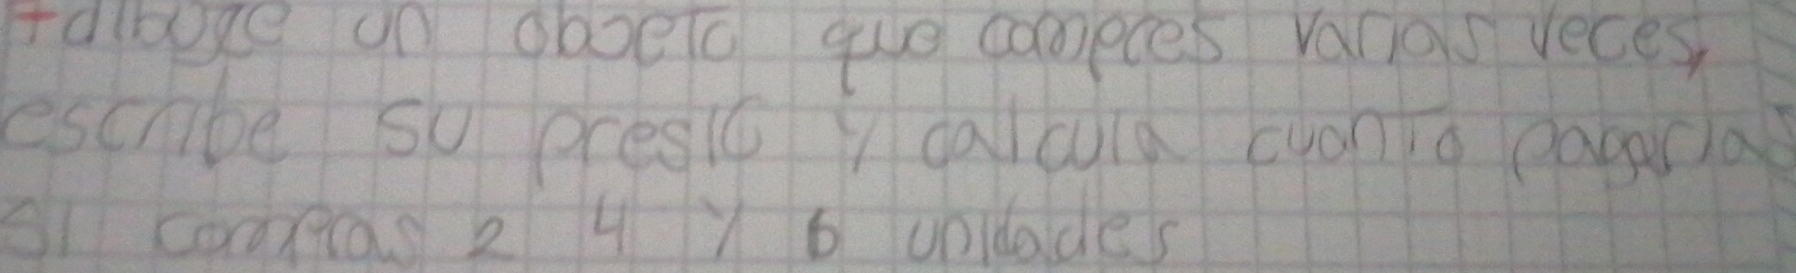 +dibuge un obgeto que compres varias veces,
escribe su presio y calcula cuanto pagarias
si compras 2 4 y 6 unidades